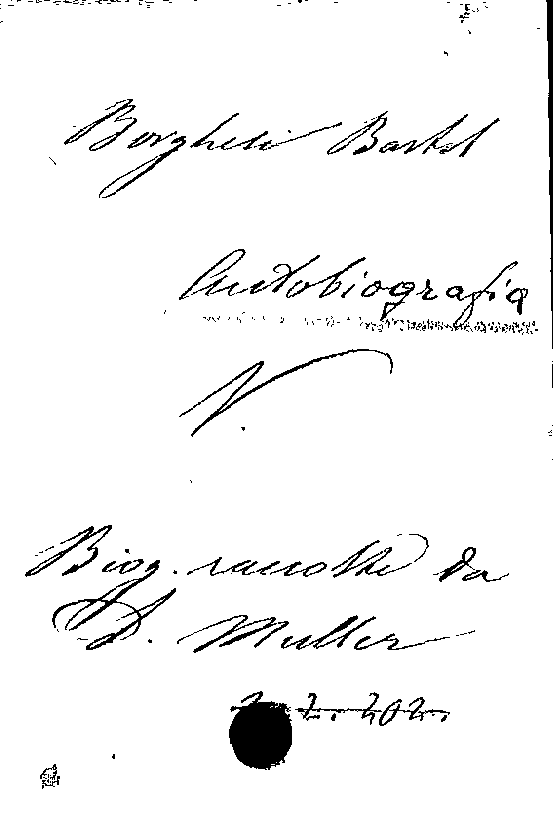 Borghesi Bartol
Autobiografia
V.
Biog. raccolte da
D. Muller